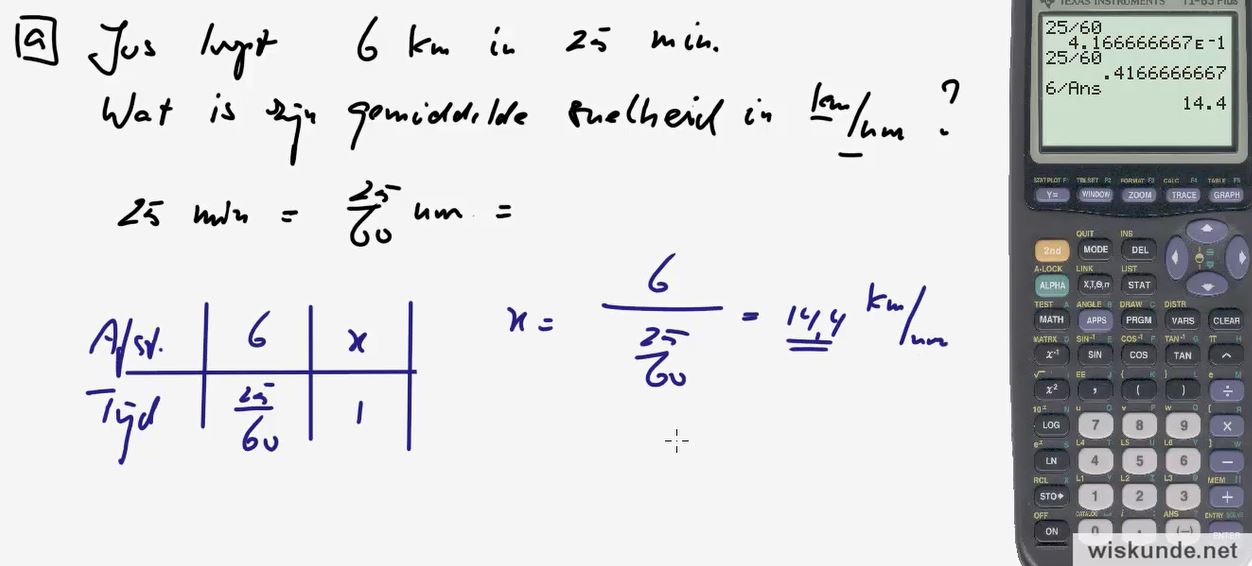 a Jos loopt 6 km in 25 min.
Wat is zijn gemiddelde snelheid in km/uur ?
25 min = 25/60 uur =
Afst. 6 x
Tijd 25/60 1
x = 6/(25/60) = 14,4 km/uur
TEXAS INSTRUMENTS TI-83 Plus
25/60
4.166666667E-1
25/60
.4166666667
6/Ans
14.4
STAT PLOT F1 TBLSET F2 FORMAT F3 CALC F4 TABLE F5
Y= WINDOW ZOOM TRACE GRAPH
QUIT INS
2nd MODE DEL
A-LOCK LINK LIST
ALPHA X,T,Θ,n STAT
TEST A ANGLE B DRAW C DISTR
MATH APPS PRGM VARS CLEAR
MATRX D SIN⁻¹ E COS⁻¹ F TAN⁻¹ G π H
x⁻¹ SIN COS TAN ^
√ I EE J { K } L e M
x² , ( ) ÷
10ˣ N u O v P w Q [ R
LOG 7 8 9 ×
eˣ S L4 T L5 U L6 V ] W
LN 4 5 6 −
RCL X L1 Y L2 Z L3 θ MEM "
STO▸ 1 2 3 +
OFF CATALOG ANS ? ENTRY SOLVE
ON 0 . (−) ENTER
wiskunde.net